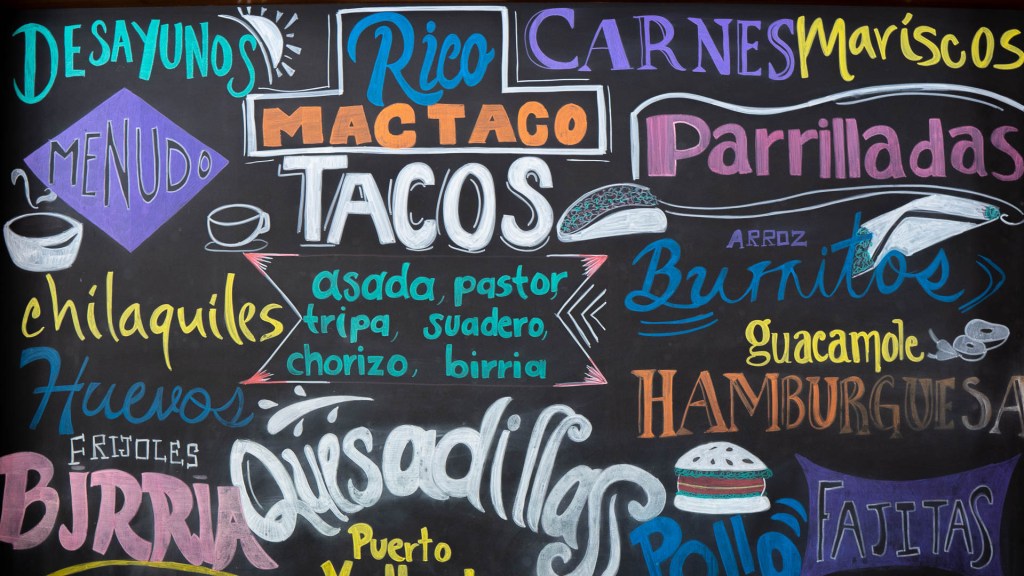 DESAYUNOS
Rico
MACTACO
CARNES
Maríscos
MENUDO
TACOS
Parrilladas
ARROZ
Burritos
asada, pastor,
tripa, suadero,
chorizo, birria
chilaquiles
guacamole
Huevos
HAMBURGUESA
FRIJOLES
BIRRIA
Quisadillas
Pollo
FAJITAS
Puerto